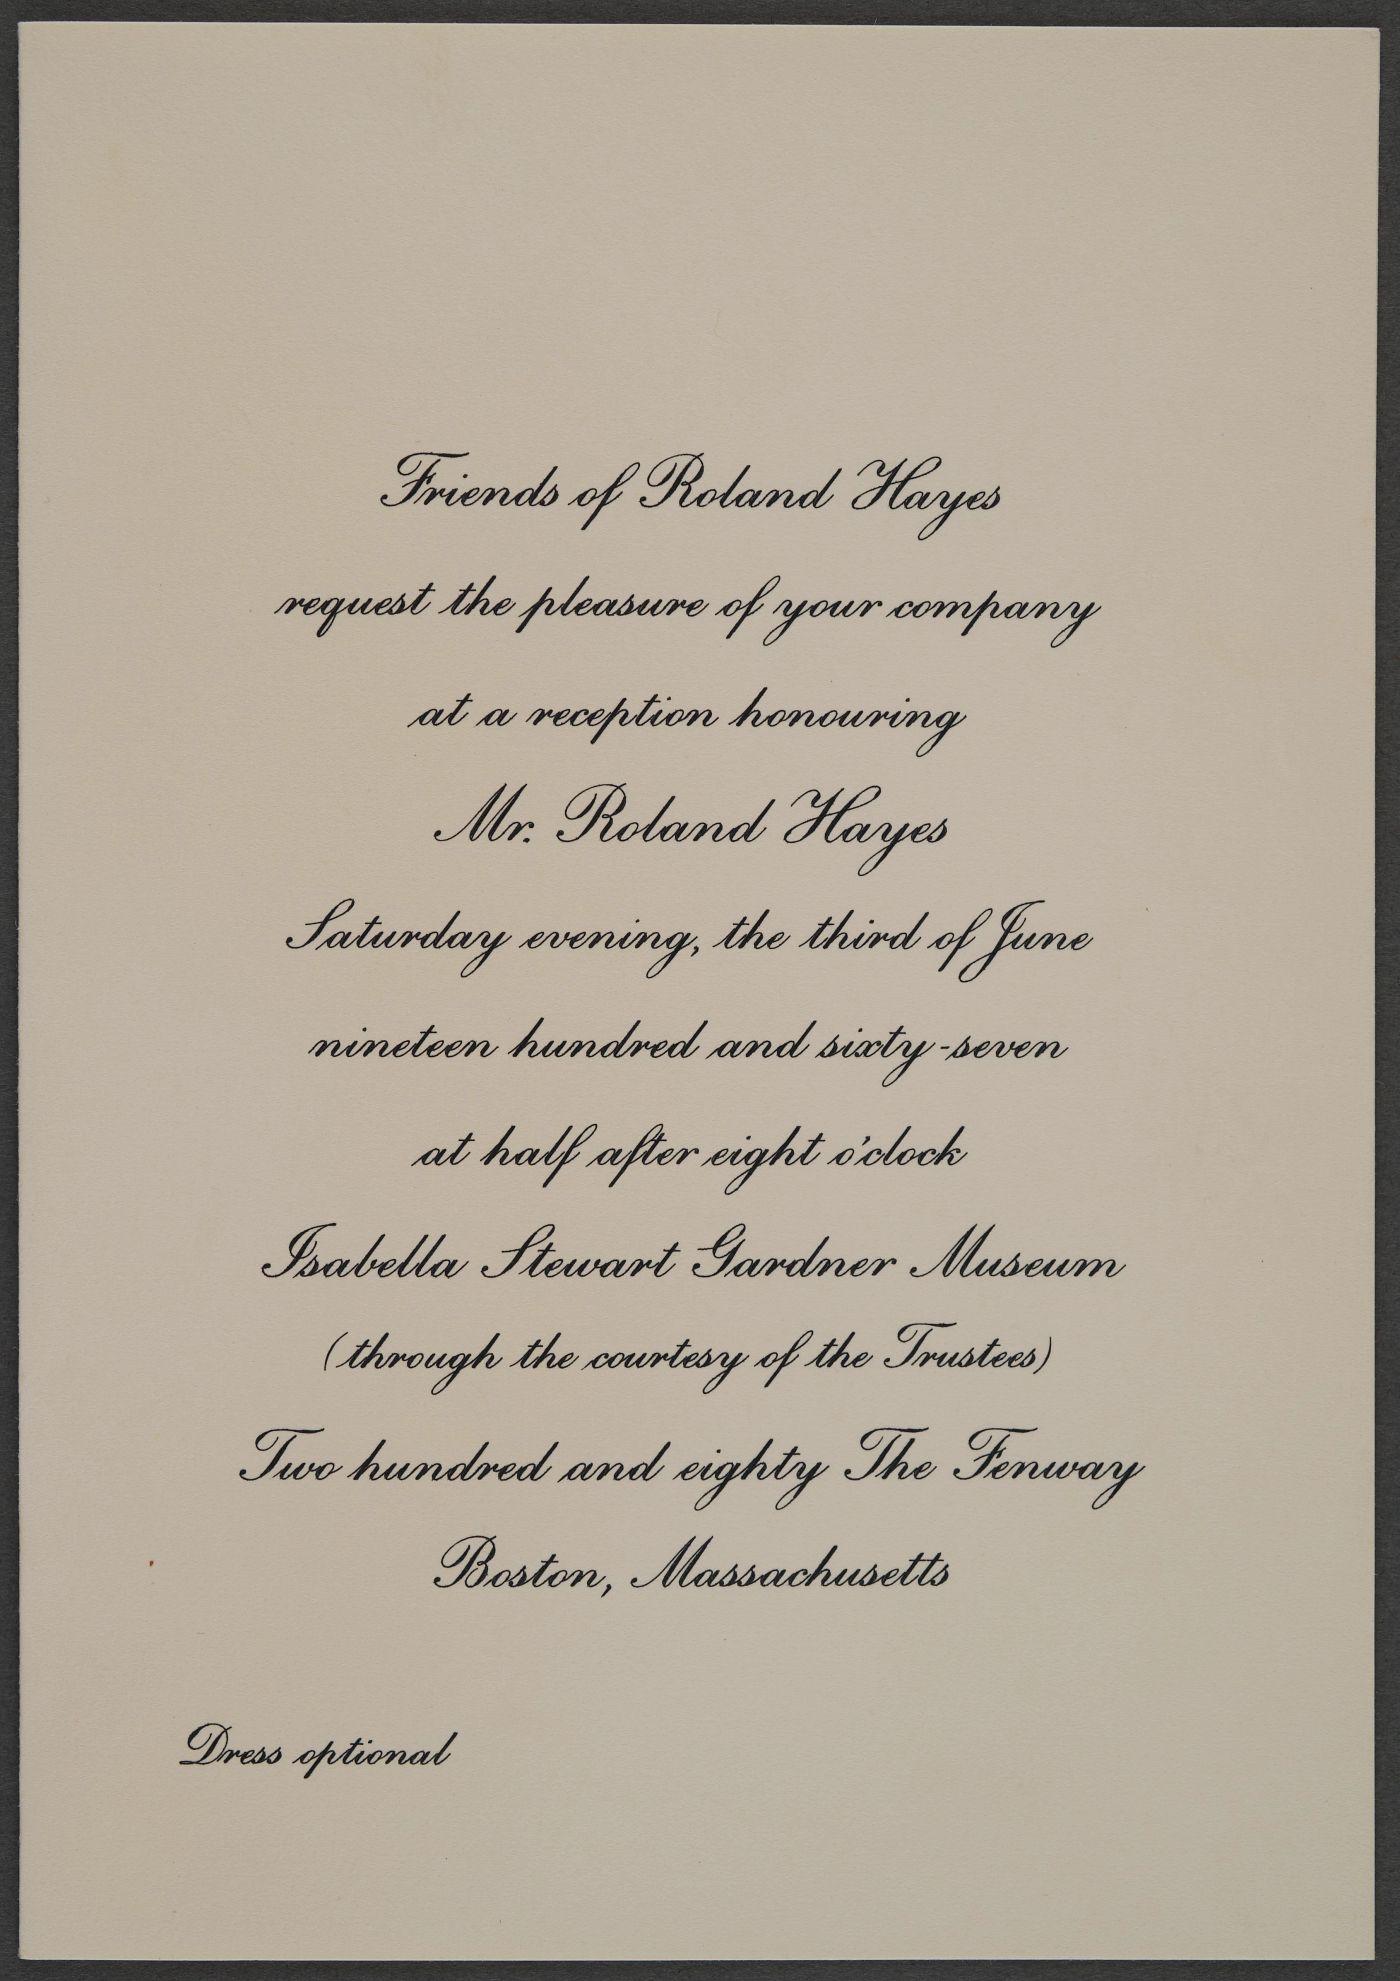 Friends of Roland Hayes
request the pleasure of your company
at a reception honouring
Mr. Roland Hayes
Saturday evening, the third of June
nineteen hundred and sixty-seven
at half after eight o'clock
Isabella Stewart Gardner Museum
(through the courtesy of the Trustees)
Two hundred and eighty The Fenway
Boston, Massachusetts
Dress optional